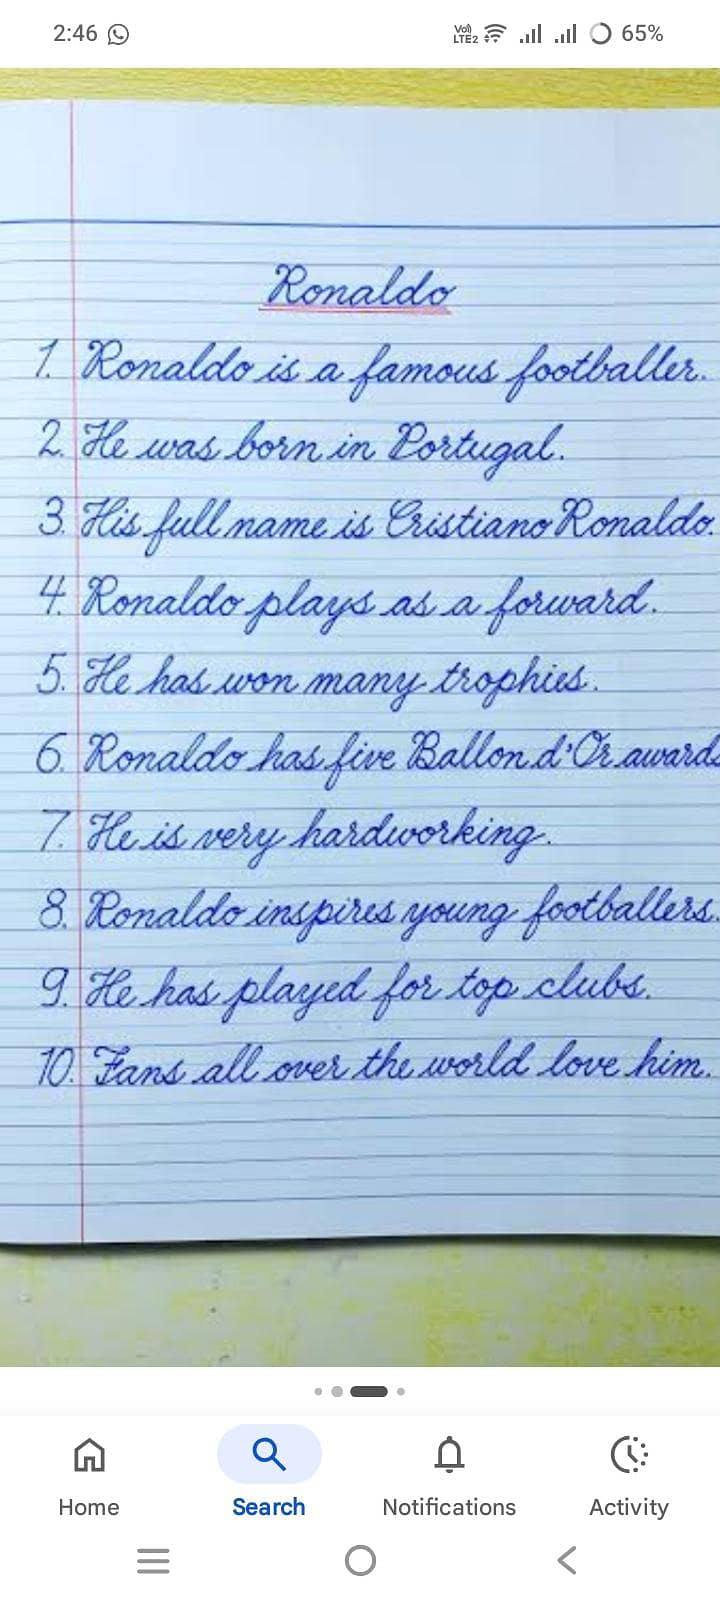 2:46
Vol) LTE2 65%
Ronaldo
1. Ronaldo is a famous footballer.
2. He was born in Portugal.
3. His full name is Cristiano Ronaldo.
4. Ronaldo plays as a forward.
5. He has won many trophies.
6. Ronaldo has five Ballon d'Or awards
7. He is very hardworking.
8. Ronaldo inspires young footballers.
9. He has played for top clubs.
10. Fans all over the world love him.
Home Search Notifications Activity